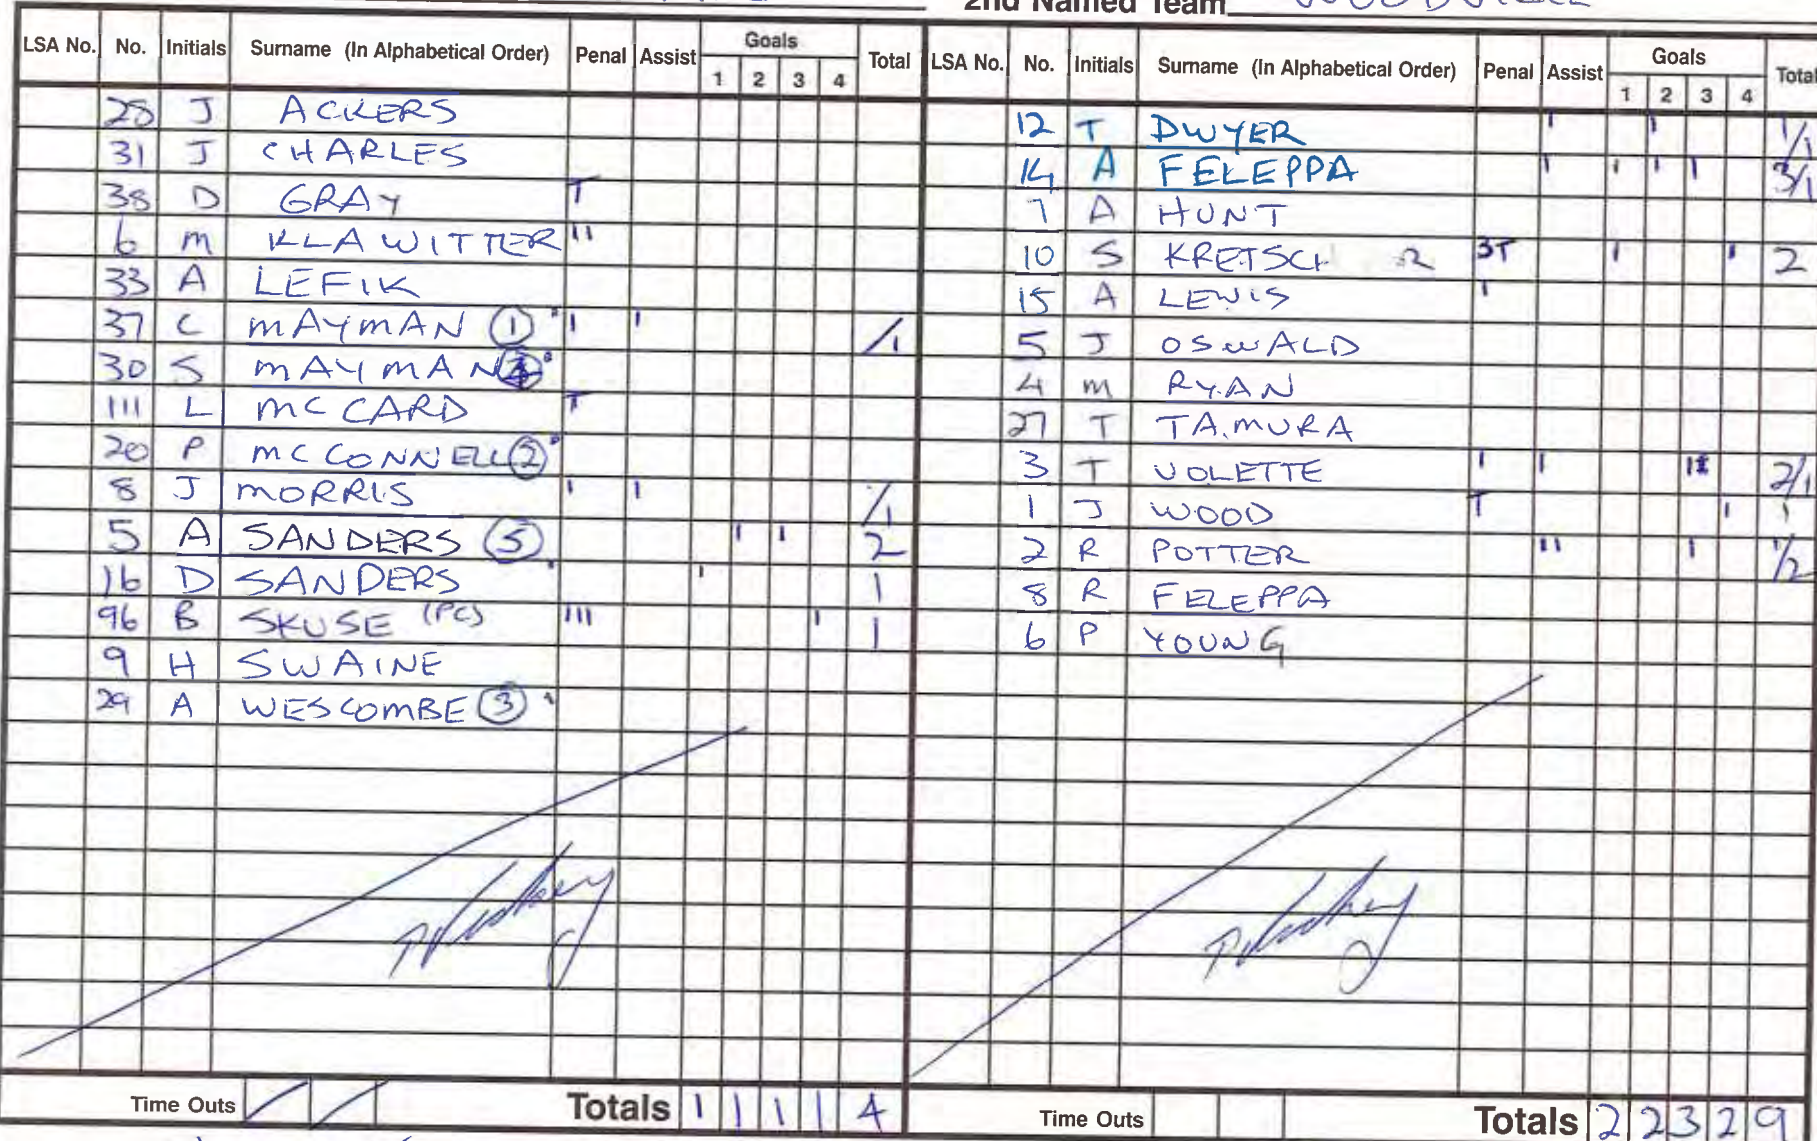 2nd Named Team WOODVILLE
LSA No. No. Initials Surname (In Alphabetical Order) Penal Assist Goals 1 2 3 4 Total
28 J ACKERS
31 J CHARLES
38 D GRAY T
6 M KLAWITTER 11
33 A LEFIK
37 C MAYMAN 1 1 1 /1
30 S MAYMAN
111 L MC CARD T
20 P MC CONNELL 2
8 J MORRIS 1 1 /1
5 A SANDERS 5 1 1 2
16 D SANDERS 1 1
96 B SKUSE (PC) 111 1 1
9 H SWAINE
29 A WESCOMBE 3
Time Outs / / Totals 1 1 1 1 4
LSA No. No. Initials Surname (In Alphabetical Order) Penal Assist Goals 1 2 3 4 Total
12 T DWYER 1 1 1/1
14 A FELEPPA 1 1 1 1 3/1
7 A HUNT
10 S KRETSCH R 3T 1 1 2
15 A LEWIS 1
5 J OSWALD
4 M RYAN
27 T TAMURA
3 T VOLETTE 1 1 11 2/1
1 J WOOD T 1 1
2 R POTTER 11 1 1/2
8 R FELEPPA
6 P YOUNG
Time Outs Totals 2 2 3 2 9